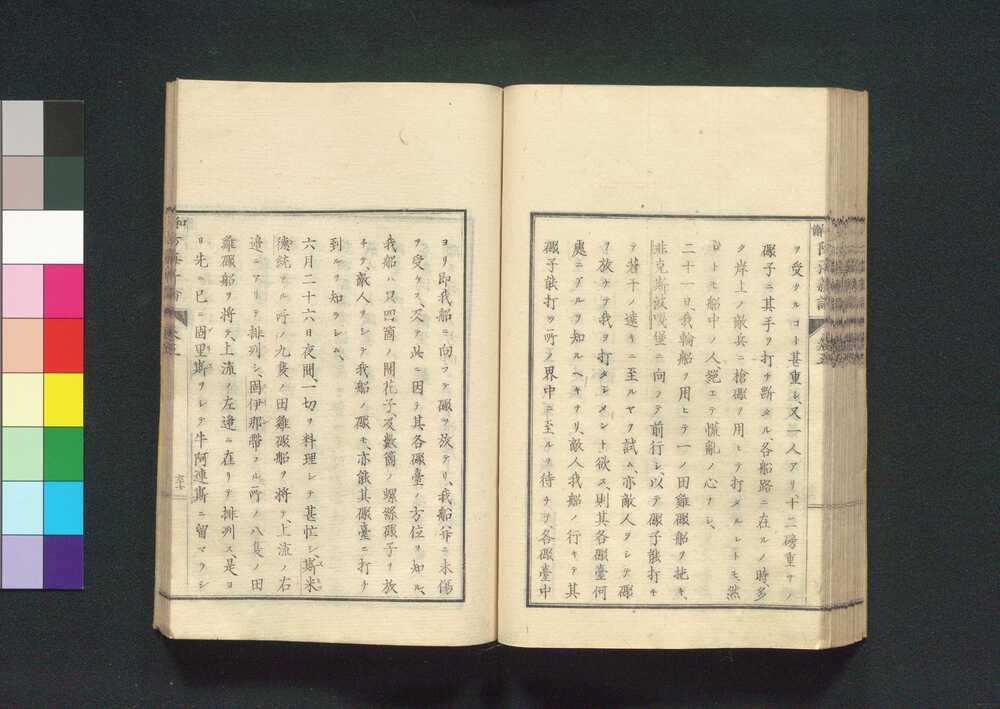 ヲ受クルコト甚重シ、又一人アリ十二磅重ヲノ
礮子ニ其手ヲ打チ断タル、各船路ニ在ルノ時、多
ク岸上ノ敵兵ニ槍礮ヲ用ヒテ打タルレトモ、然
レトモ船中ノ人絶エテ慌亂ノ心ナシ、
二十一日我輪船ヲ用ヒテ一ノ田雞礮船ヲ拖キ、
非克斯波嘎堡ニ向フテ前行シ、以テ礮子能打キ
テ若干ノ遠キニ至ルヤヲ試ム、亦敵人ヲシテ礮
ヲ放ケテ我ヲ打タシメント欲ス、則其各礮臺何
處ニアルヲ知ルヘキナリ、敵人我船ノ行キテ其
礮子能打ツ所ノ界中ニ至ルヲ待チテ、各礮臺中
ヨリ即我船ニ向フテ礮ヲ放テリ、我船幷ニ未傷
ヲ受ケス、又テ此ニ因テ其各礮臺ノ方位ヲ知ル、
我船ハ只四箇ノ開花子、及數箇ノ螺絲礮子ヲ放
チテ、敵人ヲシテ我船ノ礮モ、亦能其礮臺ニ打チ
到ルヲ知ラシム、
六月二十六日夜間、一切ヲ料理シテ甚忙シ、斯米
德統フル所ノ九隻ノ田雞礮船ヲ將テ、上流ノ右
邊ニアリテ排列シ、固伊那帶フル所ノ八隻ノ田
雞礮船ヲ將テ、上流ノ左邊ニ在リテ排列ス、是ヨ
リ先ニ已ニ固里斯ヲシテ牛阿連斯ニ留マラシ